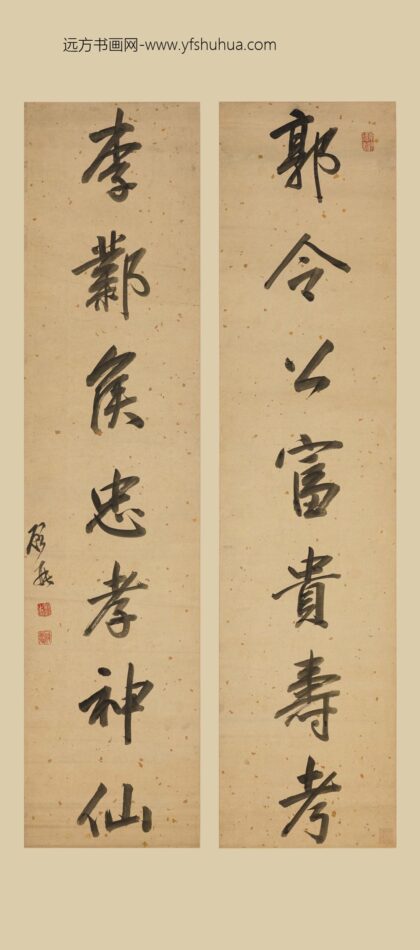 远方书画网-www.yfshuhua.com
郭令公富貴壽考
李鄴侯忠孝神仙